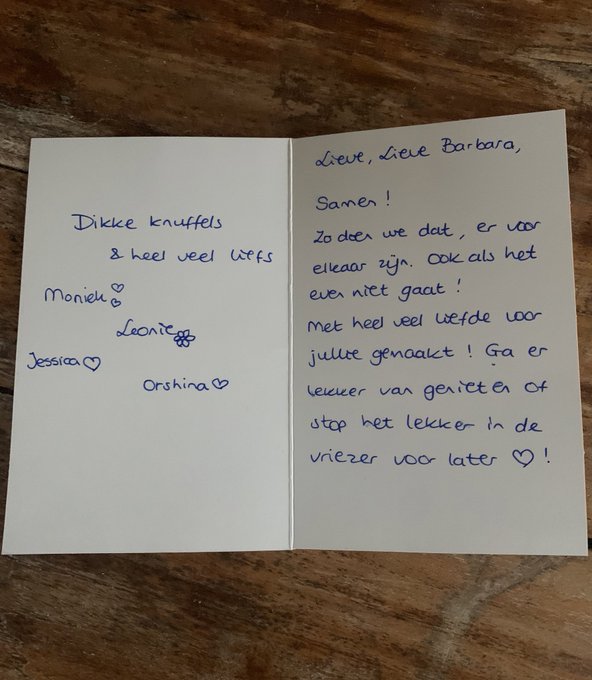 Dikke knuffels
& heel veel liefs
Moniek ♡♡
Leonie
Jessica ♡
Orshina ♡
Lieve, Lieve Barbara,
Samen!
Zo doen we dat, er voor
elkaar zijn. Ook als het
even niet gaat!
Met heel veel liefde voor
jullie gemaakt! Ga er
lekker van genieten of
stop het lekker in de
vriezer voor later ♡!